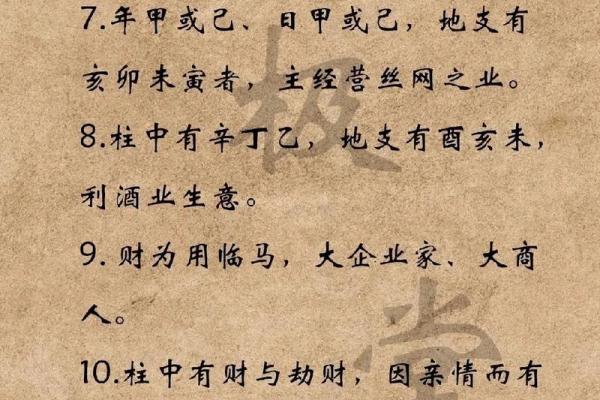 7.年甲或己、日甲或己，地支有
亥卯未寅者，主经营丝网之业。
8.柱中有辛丁乙，地支有酉亥未，
利酒业生意。
9. 财为用临马，大企业家、大商
人。
10.柱中有财与劫财，因亲情而有
极
堂